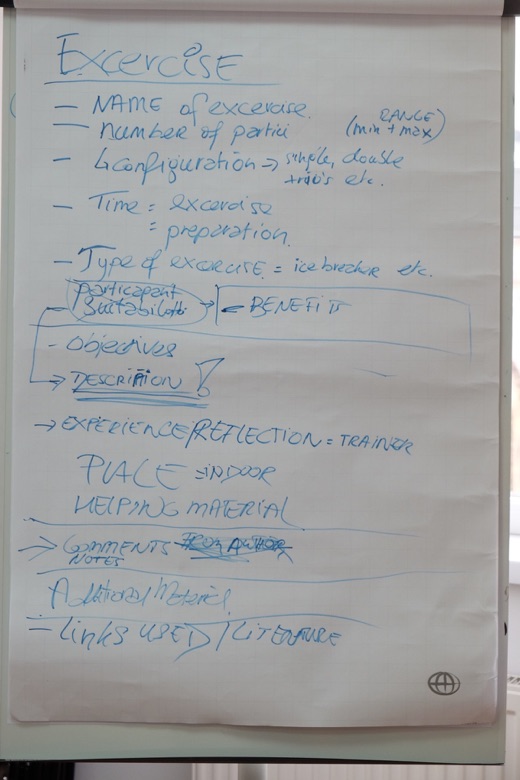 EXCERCISE
— NAME of excercise.
— number of partici (RANGE min + max)
— ↳ configuration → single, double
trio's etc.
— Time = excercise
= preparation.
— Type of excercise = icebreaker etc.
Participant
Suitability → ← BENEFITS
- Objectives
→ DESCRIPTION
→ EXPERIENCE/REFLECTION = TRAINER
PLACE = INDOOR
HELPING MATERIAL
→ COMMENTS FROM AUTHOR
NOTES
Additional Material
— Links USED / LITERATURE